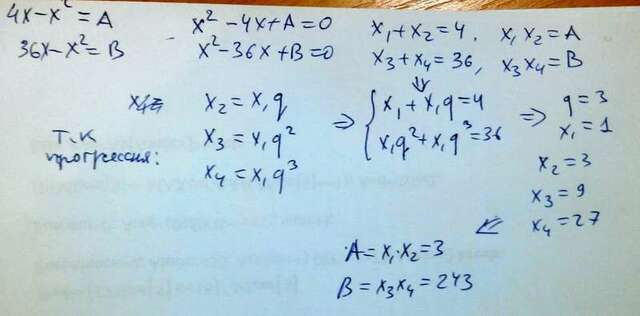 4x-x²=A
x²-4x+A=0
x₁+x₂=4. x₁x₂=A
36x-x²=B
x²-36x+B=0
x₃+x₄=36, x₃x₄=B
⇓
Т.К прогрессия:
x₂=x₁q
x₃=x₁q²
x₄=x₁q³
⇒ { x₁+x₁q=4
x₁q²+x₁q³=36
⇒ q=3
x₁=1
x₂=3
x₃=9
x₄=27
⇐
A=x₁·x₂=3
B=x₃x₄=243